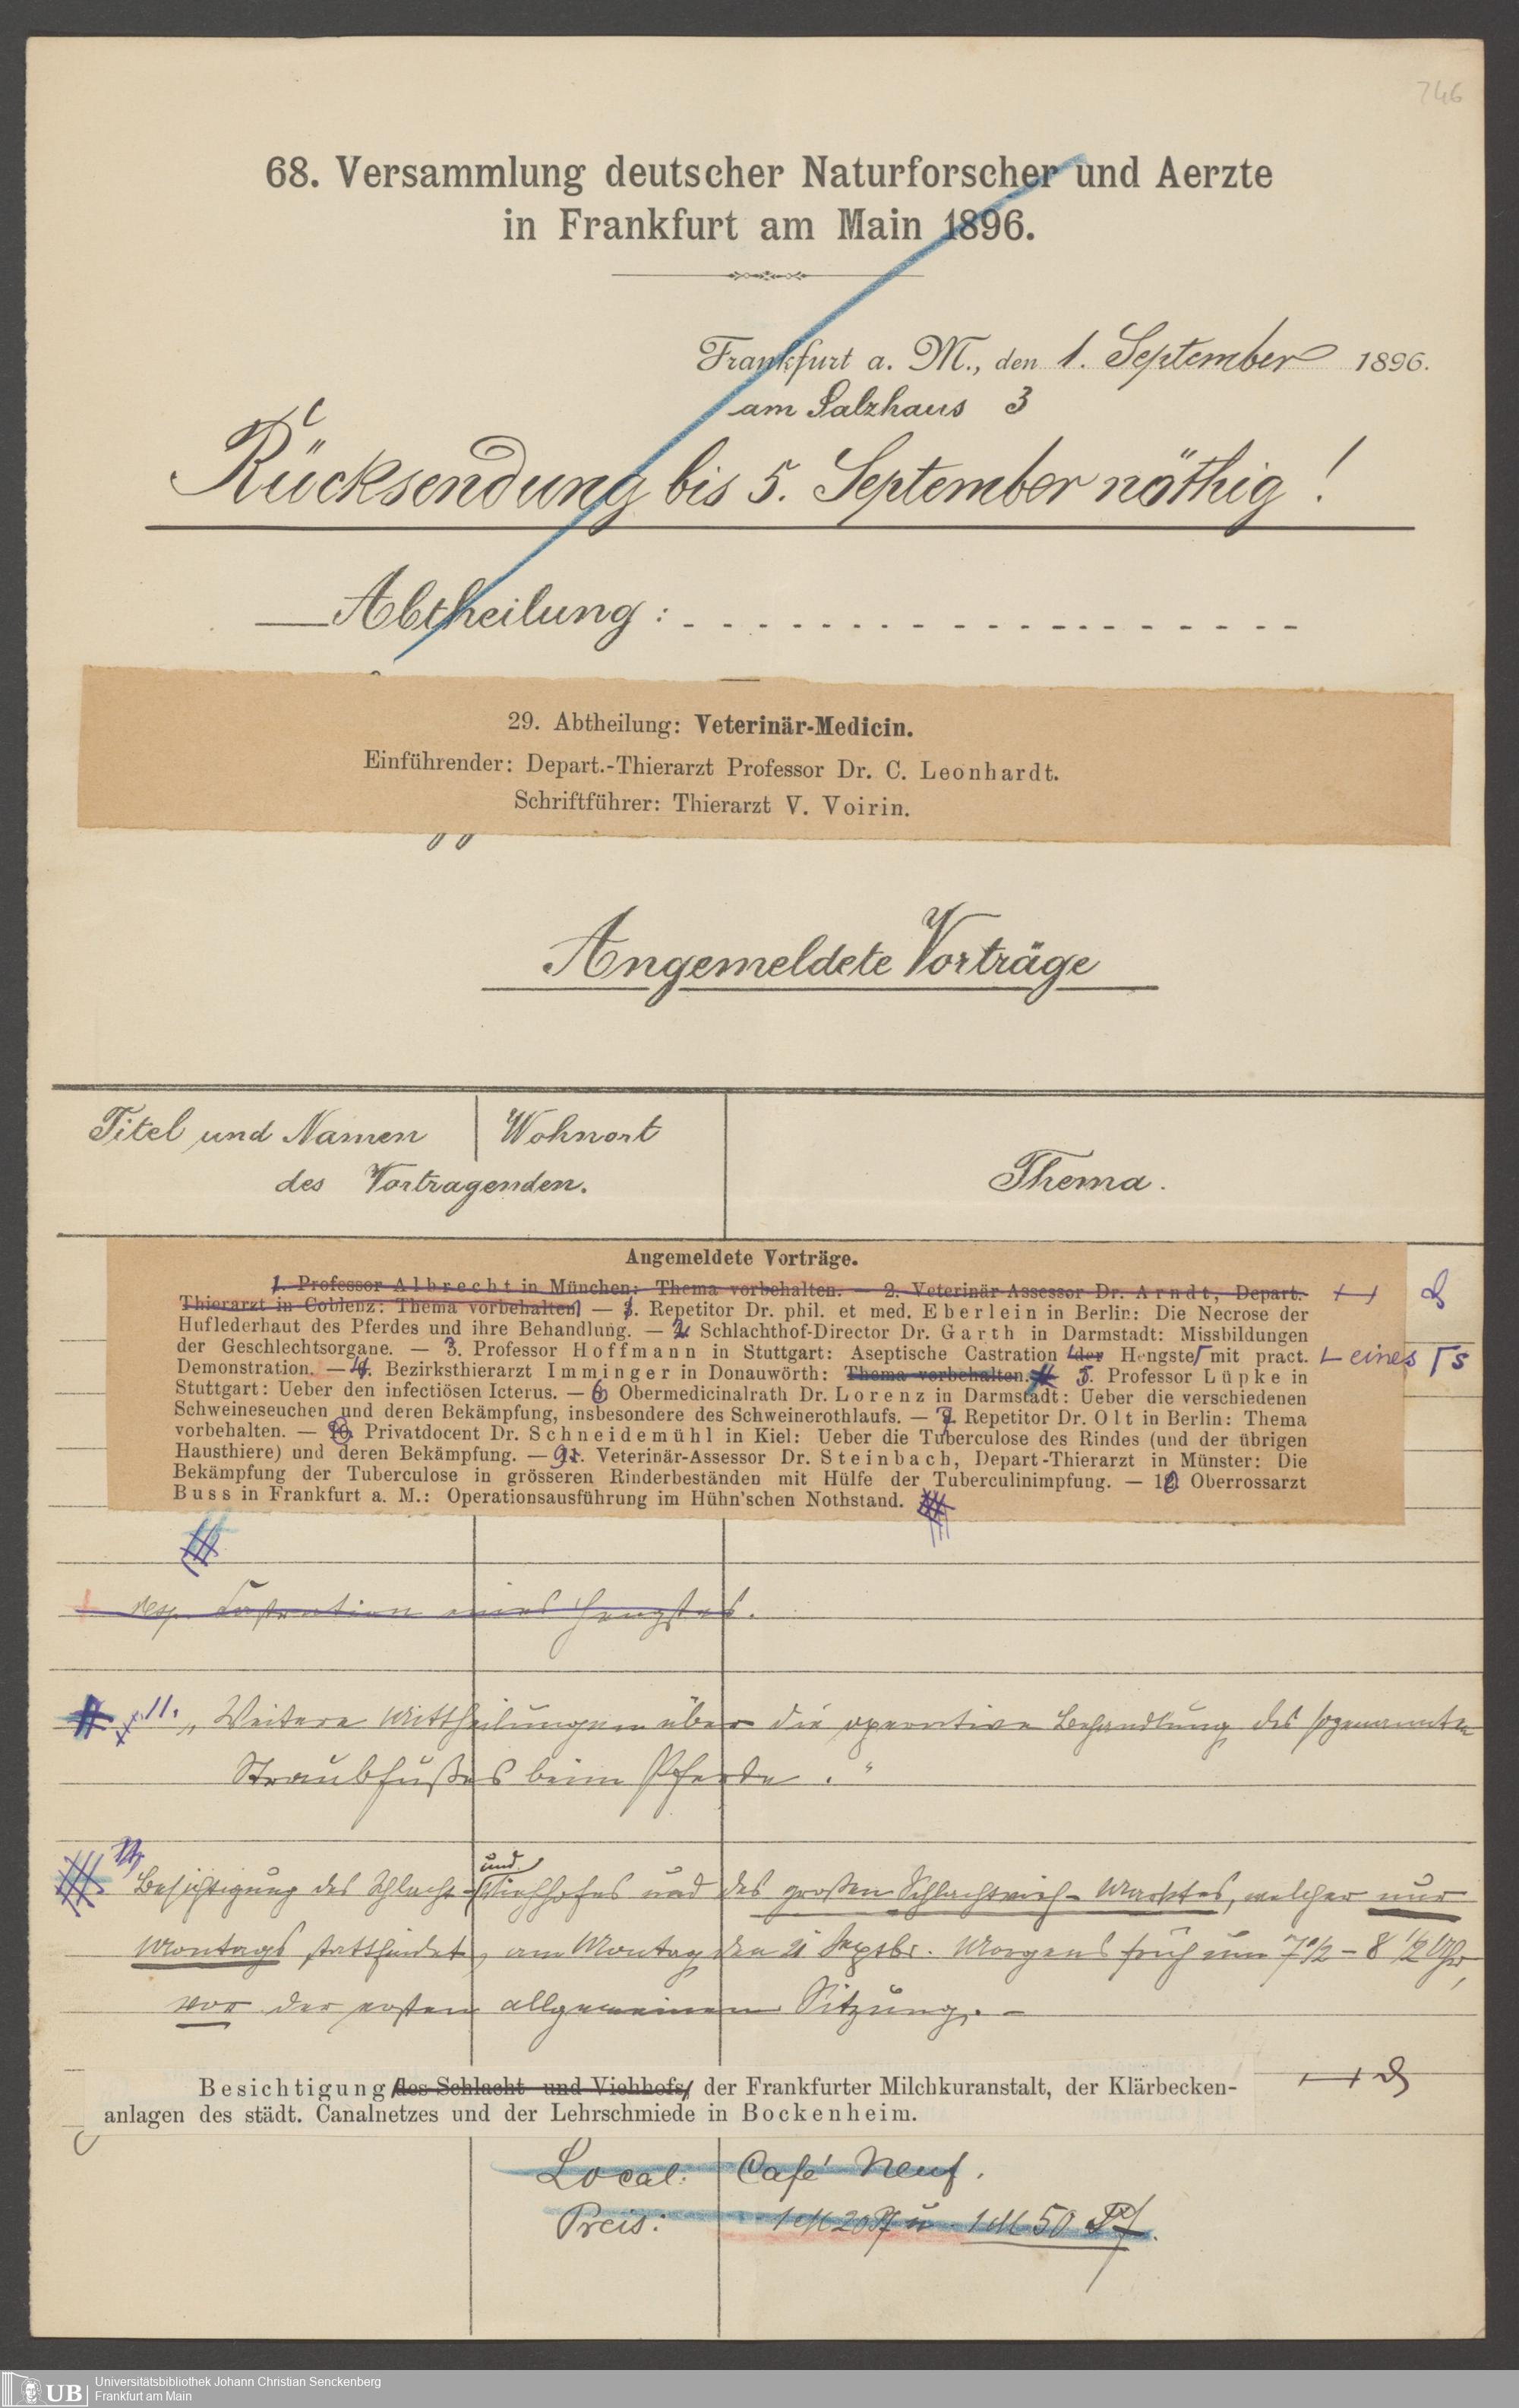 746
68. Versammlung deutscher Naturforscher und Aerzte
in Frankfurt am Main 1896.
Frankfurt a. M., den 1. September 1896.
am Salzhaus 3
Rücksendung bis 5. September nöthig!
Abtheilung:
29. Abtheilung: Veterinär-Medicin.
Einführender: Depart.-Thierarzt Professor Dr. C. Leonhardt.
Schriftführer: Thierarzt V. Voirin.
Angemeldete Vorträge
Titel und Namen Wohnort
des Vortragenden.
Thema.
Angemeldete Vorträge.
1. Professor Albrecht in München: Thema vorbehalten. — 2. Veterinär-Assessor Dr. Arndt, Depart.
Thierarzt in Coblenz: Thema vorbehalten. — 1. Repetitor Dr. phil. et med. Eberlein in Berlin: Die Necrose der
Huflederhaut des Pferdes und ihre Behandlung. — 2. Schlachthof-Director Dr. Garth in Darmstadt: Missbildungen
der Geschlechtsorgane. — 3. Professor Hoffmann in Stuttgart: Aseptische Castration der Hengste mit pract. eines s
Demonstration. — 4. Bezirksthierarzt Imminger in Donauwörth: Thema vorbehalten. 5. Professor Lüpke in
Stuttgart: Ueber den infectiösen Icterus. — 6. Obermedicinalrath Dr. Lorenz in Darmstadt: Ueber die verschiedenen
Schweineseuchen und deren Bekämpfung, insbesondere des Schweinerothlaufs. — 7. Repetitor Dr. Olt in Berlin: Thema
vorbehalten. — 8. Privatdocent Dr. Schneidemühl in Kiel: Ueber die Tuberculose des Rindes (und der übrigen
Hausthiere) und deren Bekämpfung. — 9. Veterinär-Assessor Dr. Steinbach, Depart-Thierarzt in Münster: Die
Bekämpfung der Tuberculose in grösseren Rinderbeständen mit Hülfe der Tuberculinimpfung. — 10 Oberrossarzt
Buss in Frankfurt a. M.: Operationsausführung im Hühn'schen Nothstand.
resp. Castration eines Hengstes.
11. „Weitere Mittheilungen über die operative Behandlung des sogenannten
Straubfußes beim Pferde."
Besichtigung des Schlacht- und Viehhofes und des großen Schlachtvieh-Marktes, welcher nur
Montags stattfindet, am Montag den 21 Septbr. Morgens früh um 7 1/2 - 8 1/2 Uhr,
vor der ersten allgemeinen Sitzung. –
Besichtigung des Schlacht- und Viehhofs, der Frankfurter Milchkuranstalt, der Klärbecken-
anlagen des städt. Canalnetzes und der Lehrschmiede in Bockenheim.
Local: Café Neuf.
Preis: 1 M 20 Pf u. 1 M 50 Pf.
UB Universitätsbibliothek Johann Christian Senckenberg
Frankfurt am Main